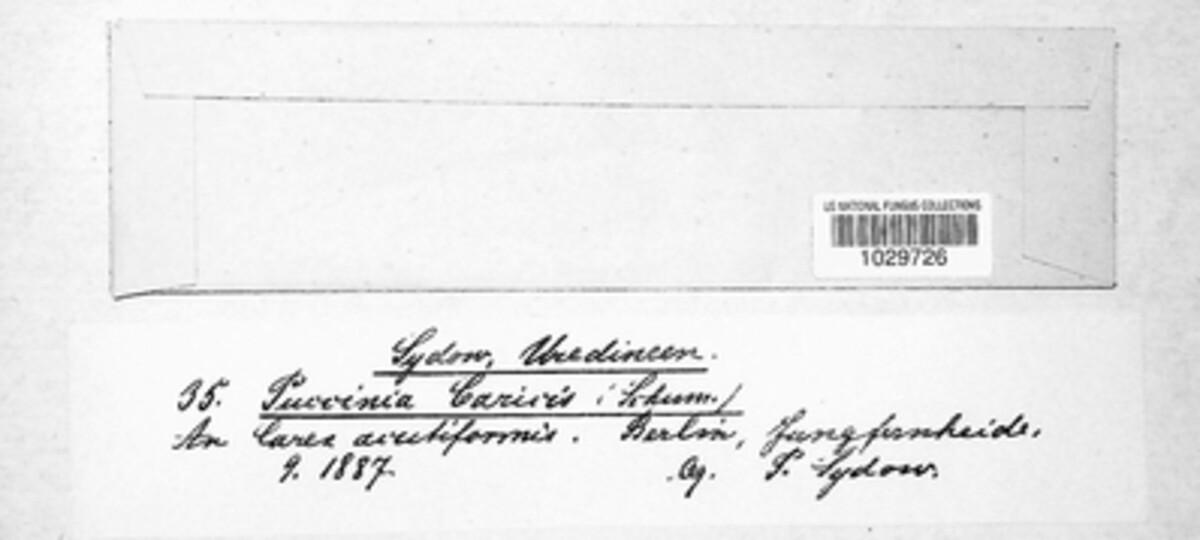 US NATIONAL FUNGUS COLLECTIONS
1029726
Sydow, Uredineen.
35. Puccinia Caricis (Schum.)
An Carex acutiformis. Berlin, Jungfernheide.
9. 1887. lg. P. Sydow.